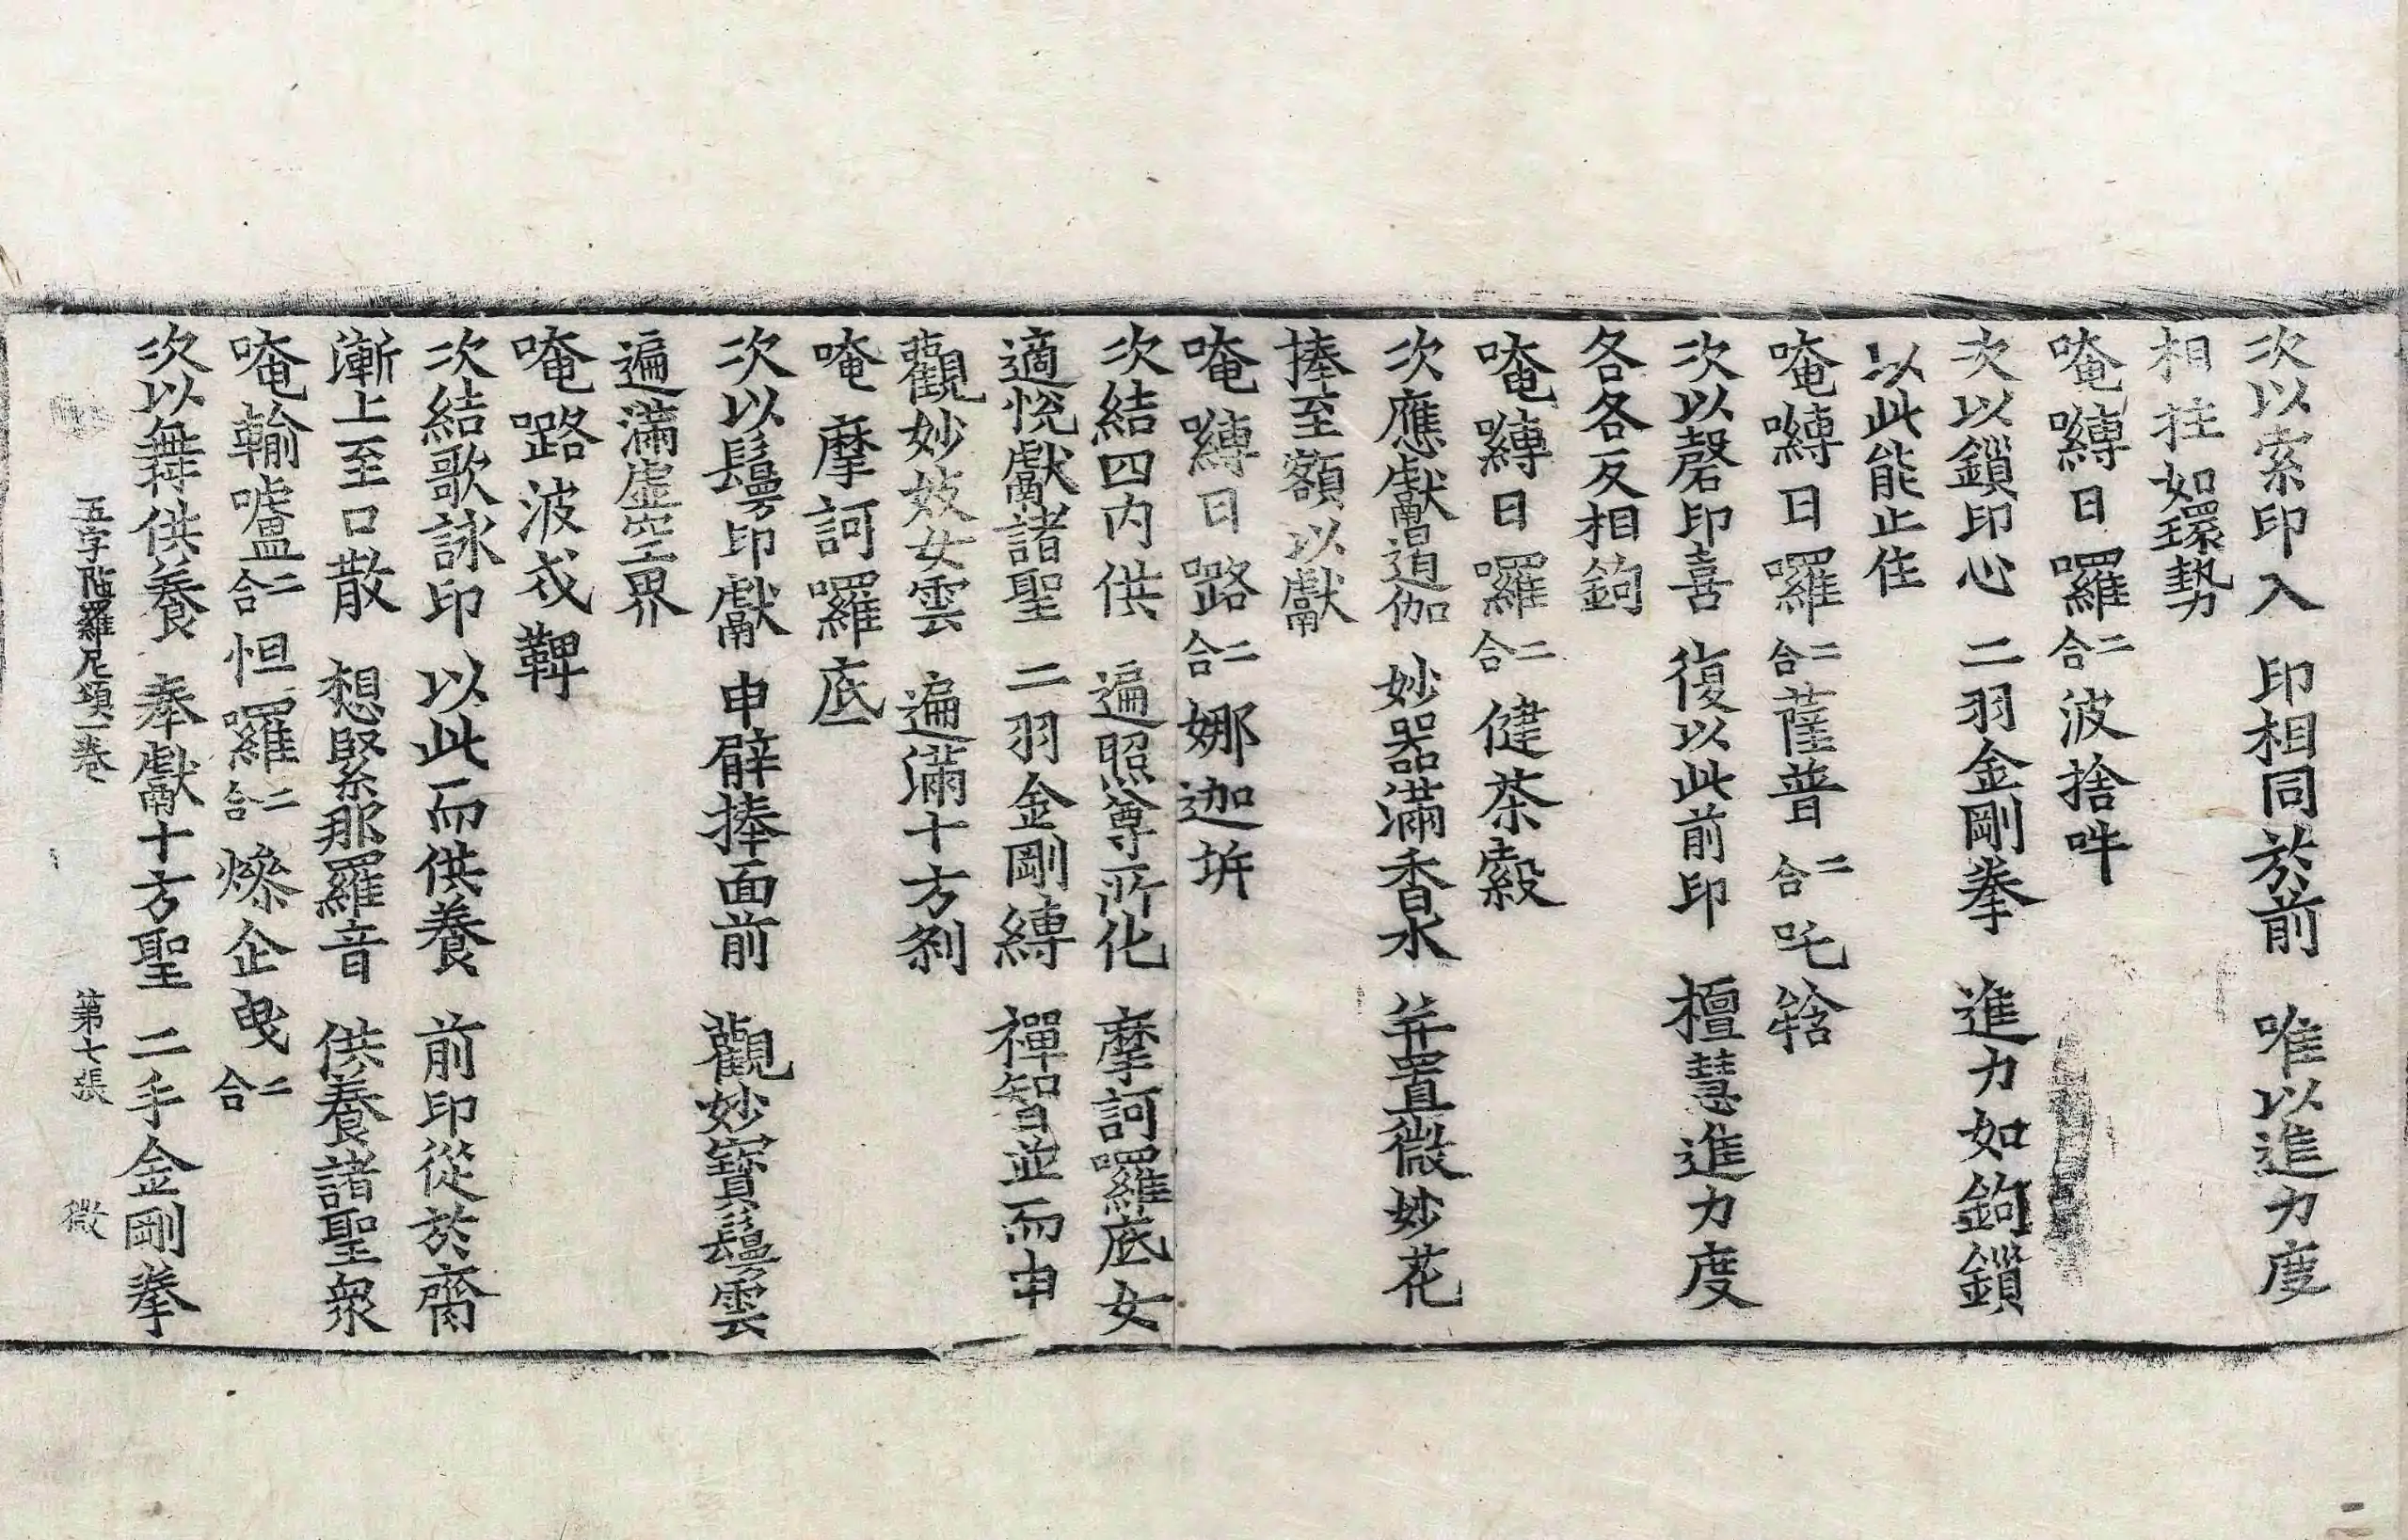 次以索印入　印相同於前　唯以進力度
相拄如環勢
唵嚩日囉二合波捨吽
次以鎖印心　二羽金剛拳　進力如鉤鎖
以此能止住
唵嚩日囉二合薩普二合吒鋡
次以磬印喜　復以此前印　檀慧進力度
各各反相鉤
唵嚩日囉二合健荼縠
次應獻遏伽　妙器滿香水　并置微妙花
捧至額以獻
唵嚩日路二合娜迦㘱
次結四内供　遍照尊所化　摩訶囉底女
適悅獻諸聖　二羽金剛縛　禪智並而申
觀妙妓女雲　遍滿十方刹
唵摩訶囉底
次以鬘印獻　申臂捧面前　觀妙寶鬘雲
遍滿虛空界
唵嚕波戍鞞
次結歌詠印　以此而供養　前印從於齊
漸上至口散　想緊那羅音　供養諸聖衆
唵輸嚧二合怛囉二合燥企曳二合
次以舞供養　奉獻十方聖　二手金剛拳
五字陁羅尼頌一卷　第七張　微